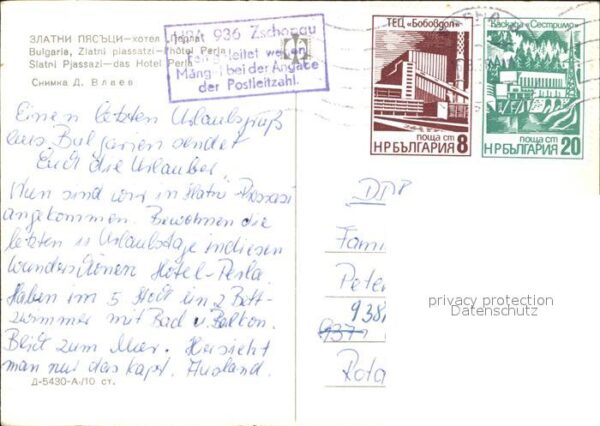 ЗЛАТНИ ПЯСЪЦИ—хотел „Перла"
Bulgaria, Zlatni piassatzi—l'hôtel Perla
Slatni Pjassazi—das Hotel Perla
Снимка Д. Влаев
936 Zschopau
Fehlgeleitet wegen
Mängel bei der Angabe
der Postleitzahl.
ТЕЦ „Бобовдол"
поща ст
НР БЪЛГАРИЯ 8
Каскада „Сестримо"
поща ст
НР БЪЛГАРИЯ 20
Einen letzten Urlaubsgruß
aus Bulgarien sendet
Euch die Urlauber
Nun sind wir in Slatni-Piassazi
angekommen. Bewohnen die
letzten 11 Urlaubstage in diesen
wunderschönen Hotel-Perla.
Haben im 5 Stock in 2 Bett-
zimmer mit Bad u. Balkon.
Blick zum Meer. Hier sieht
man nur das kapt. Ausland.
Д-5430-А/10 ст.
DDR
Fami
Peter
938
937
Rota
privacy protection
Datenschutz